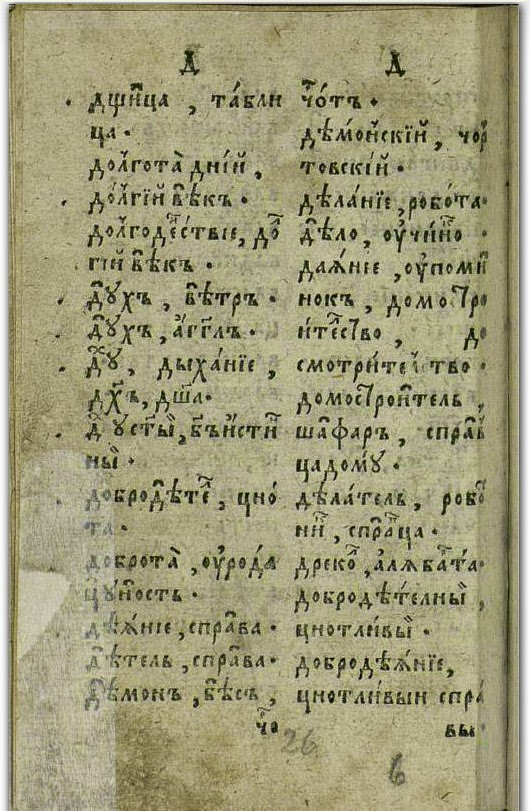 Д
дщи́ца , та́бли
ца ·
до́лгота̀ дні́й ,
до́лгїй вѣ́къ ·
долгоде́нствїе, до́л
гїй вѣ́къ ·
ду́хъ , вѣ́тръ ·
ду́хъ, а҆́гг҃лъ ·
дꙋ́ , дыха́нїе ,
дх҃ъ, дш҃а ·
ны̀ ·
добродѣ́тел , цно́
та ·
доброта̀ , оу҆ро́да
цу́дность ·
дѣѧ́нїе , спра́ва ·
дѣ́тель , спра́ва ·
де́монъ , бѣ́съ ,
чо
Д
чо́ртъ ·
де́монскїй , чор
товскі́й ·
дѣ́ланїе , робо́та ·
дѣ́ло , оу҆чи́нно ·
даѧ́нїе , оу҆поми
нокъ , домостро
и́телство , до
смотри́телство ·
домострои́тель ,
ша́фаръ , спра́в
цадо́му ·
дѣ́латель , робо́
ни , спра́вца ·
древо́ , а҆лѧба́та ·
добродѣ́телный ,
цнотли́вый ·
добродѣѧ́нїе,
цнотли́выи спра́
вы ·
26
6